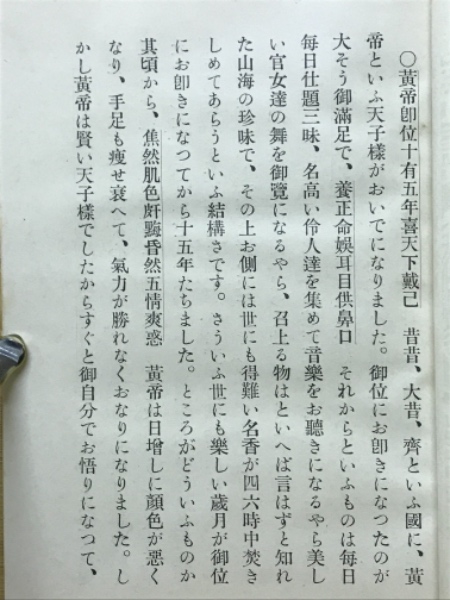 〇黃帝卽位十有五年喜天下戴己　昔昔、大昔、齊といふ國に、黃
帝といふ天子樣がおいでになりました。御位にお卽きになつたのが
大そう御滿足で、養正命娛耳目供鼻口　それからといふものは每日
每日仕題三昧、名高い伶人達を集めて音樂をお聽きになるやら美し
い官女達の舞を御覽になるやら、召上る物はといへば言はずと知れ
た山海の珍味で、その上お側には世にも得難い名香が四六時中焚き
しめてあらうといふ結構さです。さういふ世にも樂しい歲月が御位
にお卽きになつてから十五年たちました。ところがどういふものか
其頃から、焦然肌色皯黣昏然五情爽惑　黃帝は日增しに顏色が惡く
なり、手足も瘦せ衰へて、氣力が勝れなくおなりになりました。し
かし黃帝は賢い天子樣でしたからすぐと御自分でお悟りになつて、